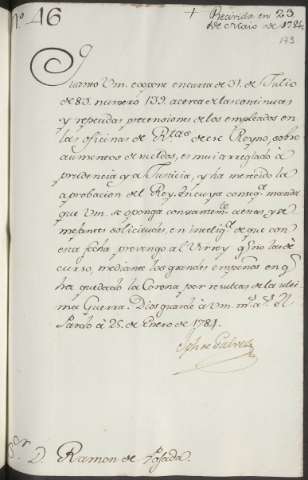 N.º 46
+ Recivida en 23
de Maio de 1784
173
Quanto Vm. expone en carta de 31. de Julio
de 83. numero 139. acerca de las continuas
y repetidas pretensiones de los empleados en
las oficinas de Rl. Has. de ese Reyno, sobre
aumentos de sueldos, es mui arreglado à
prudencia, y à Justicia, y ha merecido la
aprobacion del Rey. En cuya conseq.ª manda
que Vm. se oponga constantem.te à estas, y se-
mejantes solicitudes, en intelig.ª de que con
esta fecha prevengo al Virrey q.e no las dè
curso, mediante los grandes empeños en q.e
ha quedado la Corona por resultas de la ulti-
ma Guerra. Dios guarde à Vm. m.s a.s El
Pardo à 25. de Enero de 1784.
Jph de Galvez
S.or D. Ramon de Posada.